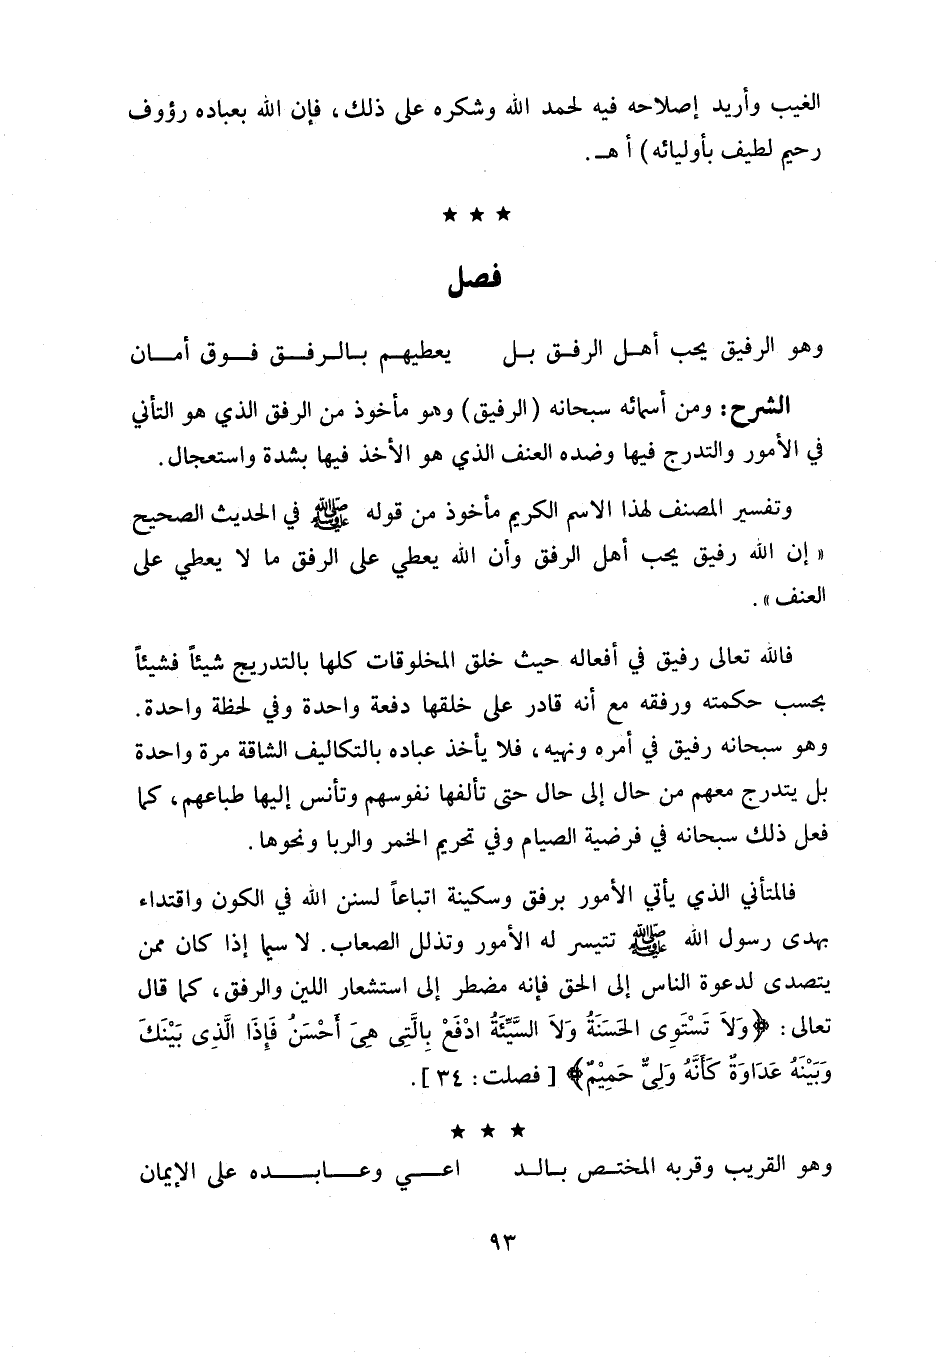 الغيب وأريد إصلاحه فيه لحمد الله وشكره على ذلك، فإن الله بعباده رؤوف
رحيم لطيف بأوليائه) أ هـ.
★ ★ ★
فصل
وهو الرفيق يحب أهـل الرفـق بـل يعطيهـم بـالـرفـق فـوق أمـان
الشرح: ومن أسمائه سبحانه (الرفيق) وهو مأخوذ من الرفق الذي هو التأني
في الأمور والتدرج فيها وضده العنف الذي هو الأخذ فيها بشدة واستعجال.
وتفسير المصنف لهذا الاسم الكريم مأخوذ من قوله ﷺ في الحديث الصحيح
« إن الله رفيق يحب أهل الرفق وأن الله يعطي على الرفق ما لا يعطي على
العنف ».
فالله تعالى رفيق في أفعاله حيث خلق المخلوقات كلها بالتدريج شيئاً فشيئاً
بحسب حكمته ورفقه مع أنه قادر على خلقها دفعة واحدة وفي لحظة واحدة.
وهو سبحانه رفيق في أمره ونهيه، فلا يأخذ عباده بالتكاليف الشاقة مرة واحدة
بل يتدرج معهم من حال إلى حال حتى تألفها نفوسهم وتأنس إليها طباعهم، كما
فعل ذلك سبحانه في فرضية الصيام وفي تحريم الخمر والربا ونحوها.
فالمتأني الذي يأتي الأمور برفق وسكينة اتباعاً لسنن الله في الكون واقتداء
بهدى رسول الله ﷺ تتيسر له الأمور وتذلل الصعاب. لا سيما إذا كان ممن
يتصدى لدعوة الناس إلى الحق فإنه مضطر إلى استشعار اللين والرفق، كما قال
تعالى: ﴿وَلاَ تَسْتَوِى الحَسَنَةُ وَلاَ السَّيِّئَةُ ادْفَعْ بِالَّتِى هِىَ أَحْسَنُ فَإِذَا الَّذِى بَيْنَكَ
وَبَيْنَهُ عَدَاوَةٌ كَأَنَّهُ وَلِىٌّ حَمِيْمٌ﴾ [ فصلت: ٣٤ ].
★ ★ ★
وهو القريب وقربه المختـص بـالـد اعـــي وعـــابـــــده على الإيمان
٩٣